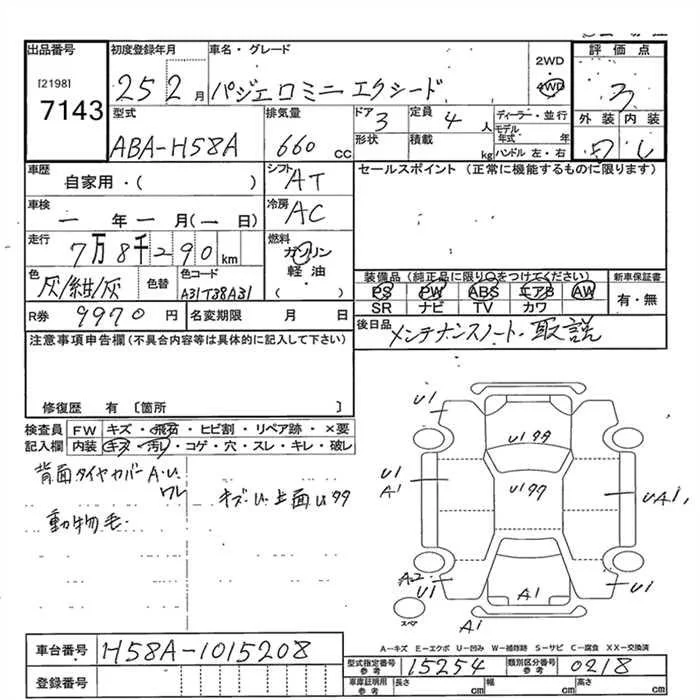 出品番号 初度登録年月 車名・グレード 2WD 評価点
[2198] 7143 25 2月 パジェロミニ エクシード 4WD 3
型式 排気量 ドア 3 定員 4人 ディーラー・並行 外装 内装
ABA-H58A 660cc 形状 積載 kg モデル年式 年 ハンドル 左・右
車歴 自家用・( ) シフト AT セールスポイント (正常に機能するものに限ります)
車検 一年一月(一日) 冷房 AC
走行 7万8千290km 燃料 ガソリン 軽油 ( )
色 灰/紺/灰 色替 色コード A31T38A31
装備品(純正品に限り○をつけてください) 新車保証書
PS PW ABS エアB AW 有・無
SR ナビ TV カワ
R券 9970円 名変期限 月 日 後日品 メンテナンスノート・取説
注意事項申告欄(不具合内容等は具体的に記入して下さい)
修復歴 有 [箇所 ]
検査員記入欄 FW キズ・飛石・ヒビ割・リペア跡・×要
内装 キズ・汚レ・コゲ・穴・スレ・キレ・破レ
背面タイヤカバー A・U ワレ
キズ・U・上面U99
動物毛・
U1
U199
U1
A1
U199
UA1,
A2
U1
A1
U1
スペア
A1
A-キズ E-エクボ U-凹み W-補修跡 S-サビ C-腐食 XX-交換済
車台番号 H58A-1015208
型式指定番号 参考 15254 類別区分番号 参考 0218
登録番号
車庫証明用 参考 長さ cm 幅 cm 高さ cm